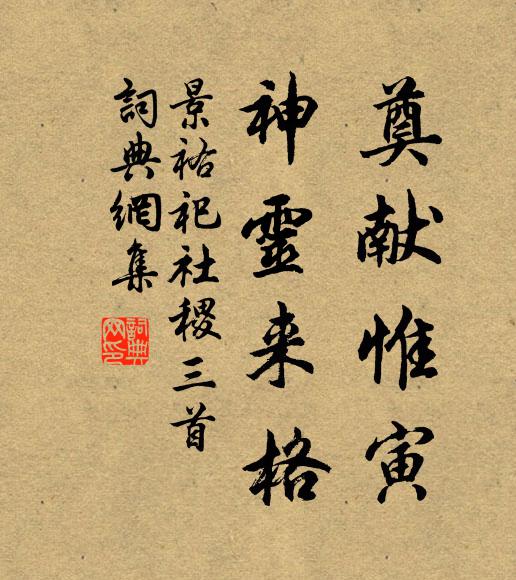 奠献惟寅
神靈来格
景祐祀社稷三首
詞典網集
詞典網印